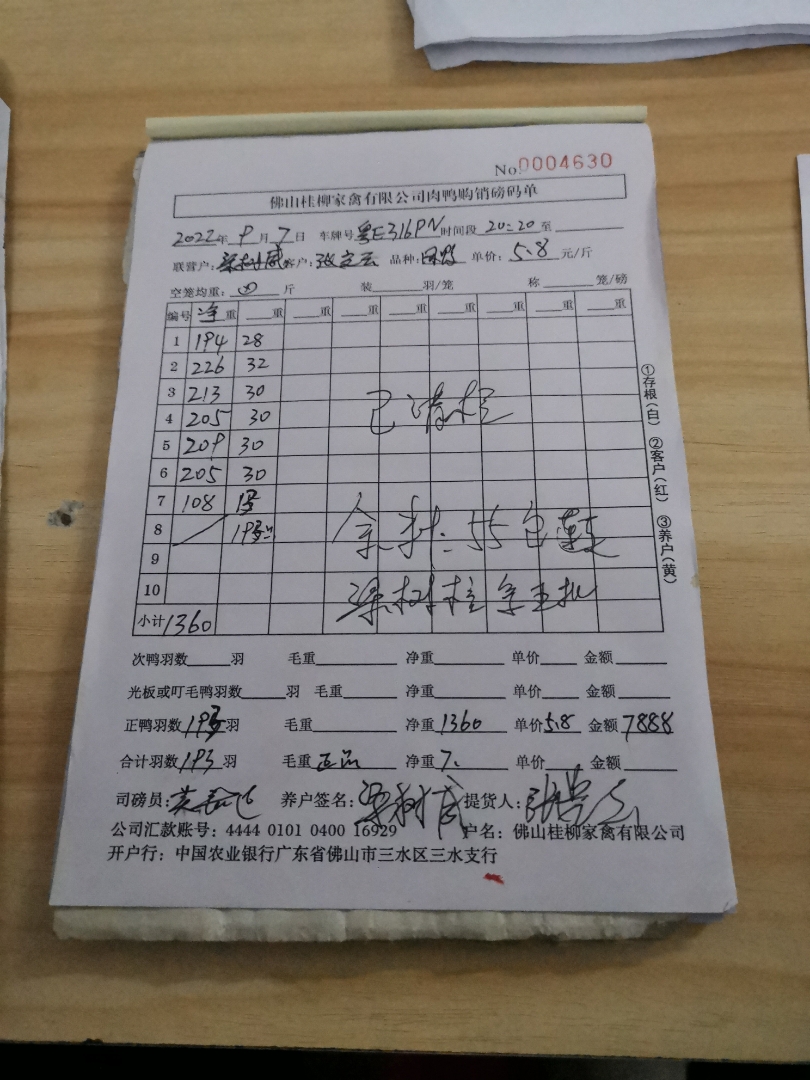 No.0004630
佛山桂柳家禽有限公司肉鸭购销磅码单
2022年9月7日 车牌号粤E316PN时间段20:20至
联营户: 客户: 品种: 单价:5.8元/斤
空笼均重: 斤 装 羽/笼 称 笼/磅
编号 净重 重 重 重 重 重 重 重 重
1 194 28
2 226 32
3 213 30
4 205 30
5 209 30
6 205 30
7 108
8
9
10
已清栏
余料:55包
梁树
小计 1360
①存根(白) ②客户(红) ③养户(黄)
次鸭羽数 羽 毛重 净重 单价 金额
光板或叮毛鸭羽数 羽 毛重 净重 单价 金额
正鸭羽数 羽 毛重 净重1360 单价5.8 金额7888
合计羽数193羽 毛重 净重7. 单价 金额
司磅员: 养户签名: 提货人:
公司汇款账号:4444 0101 0400 16929 户名:佛山桂柳家禽有限公司
开户行:中国农业银行广东省佛山市三水区三水支行